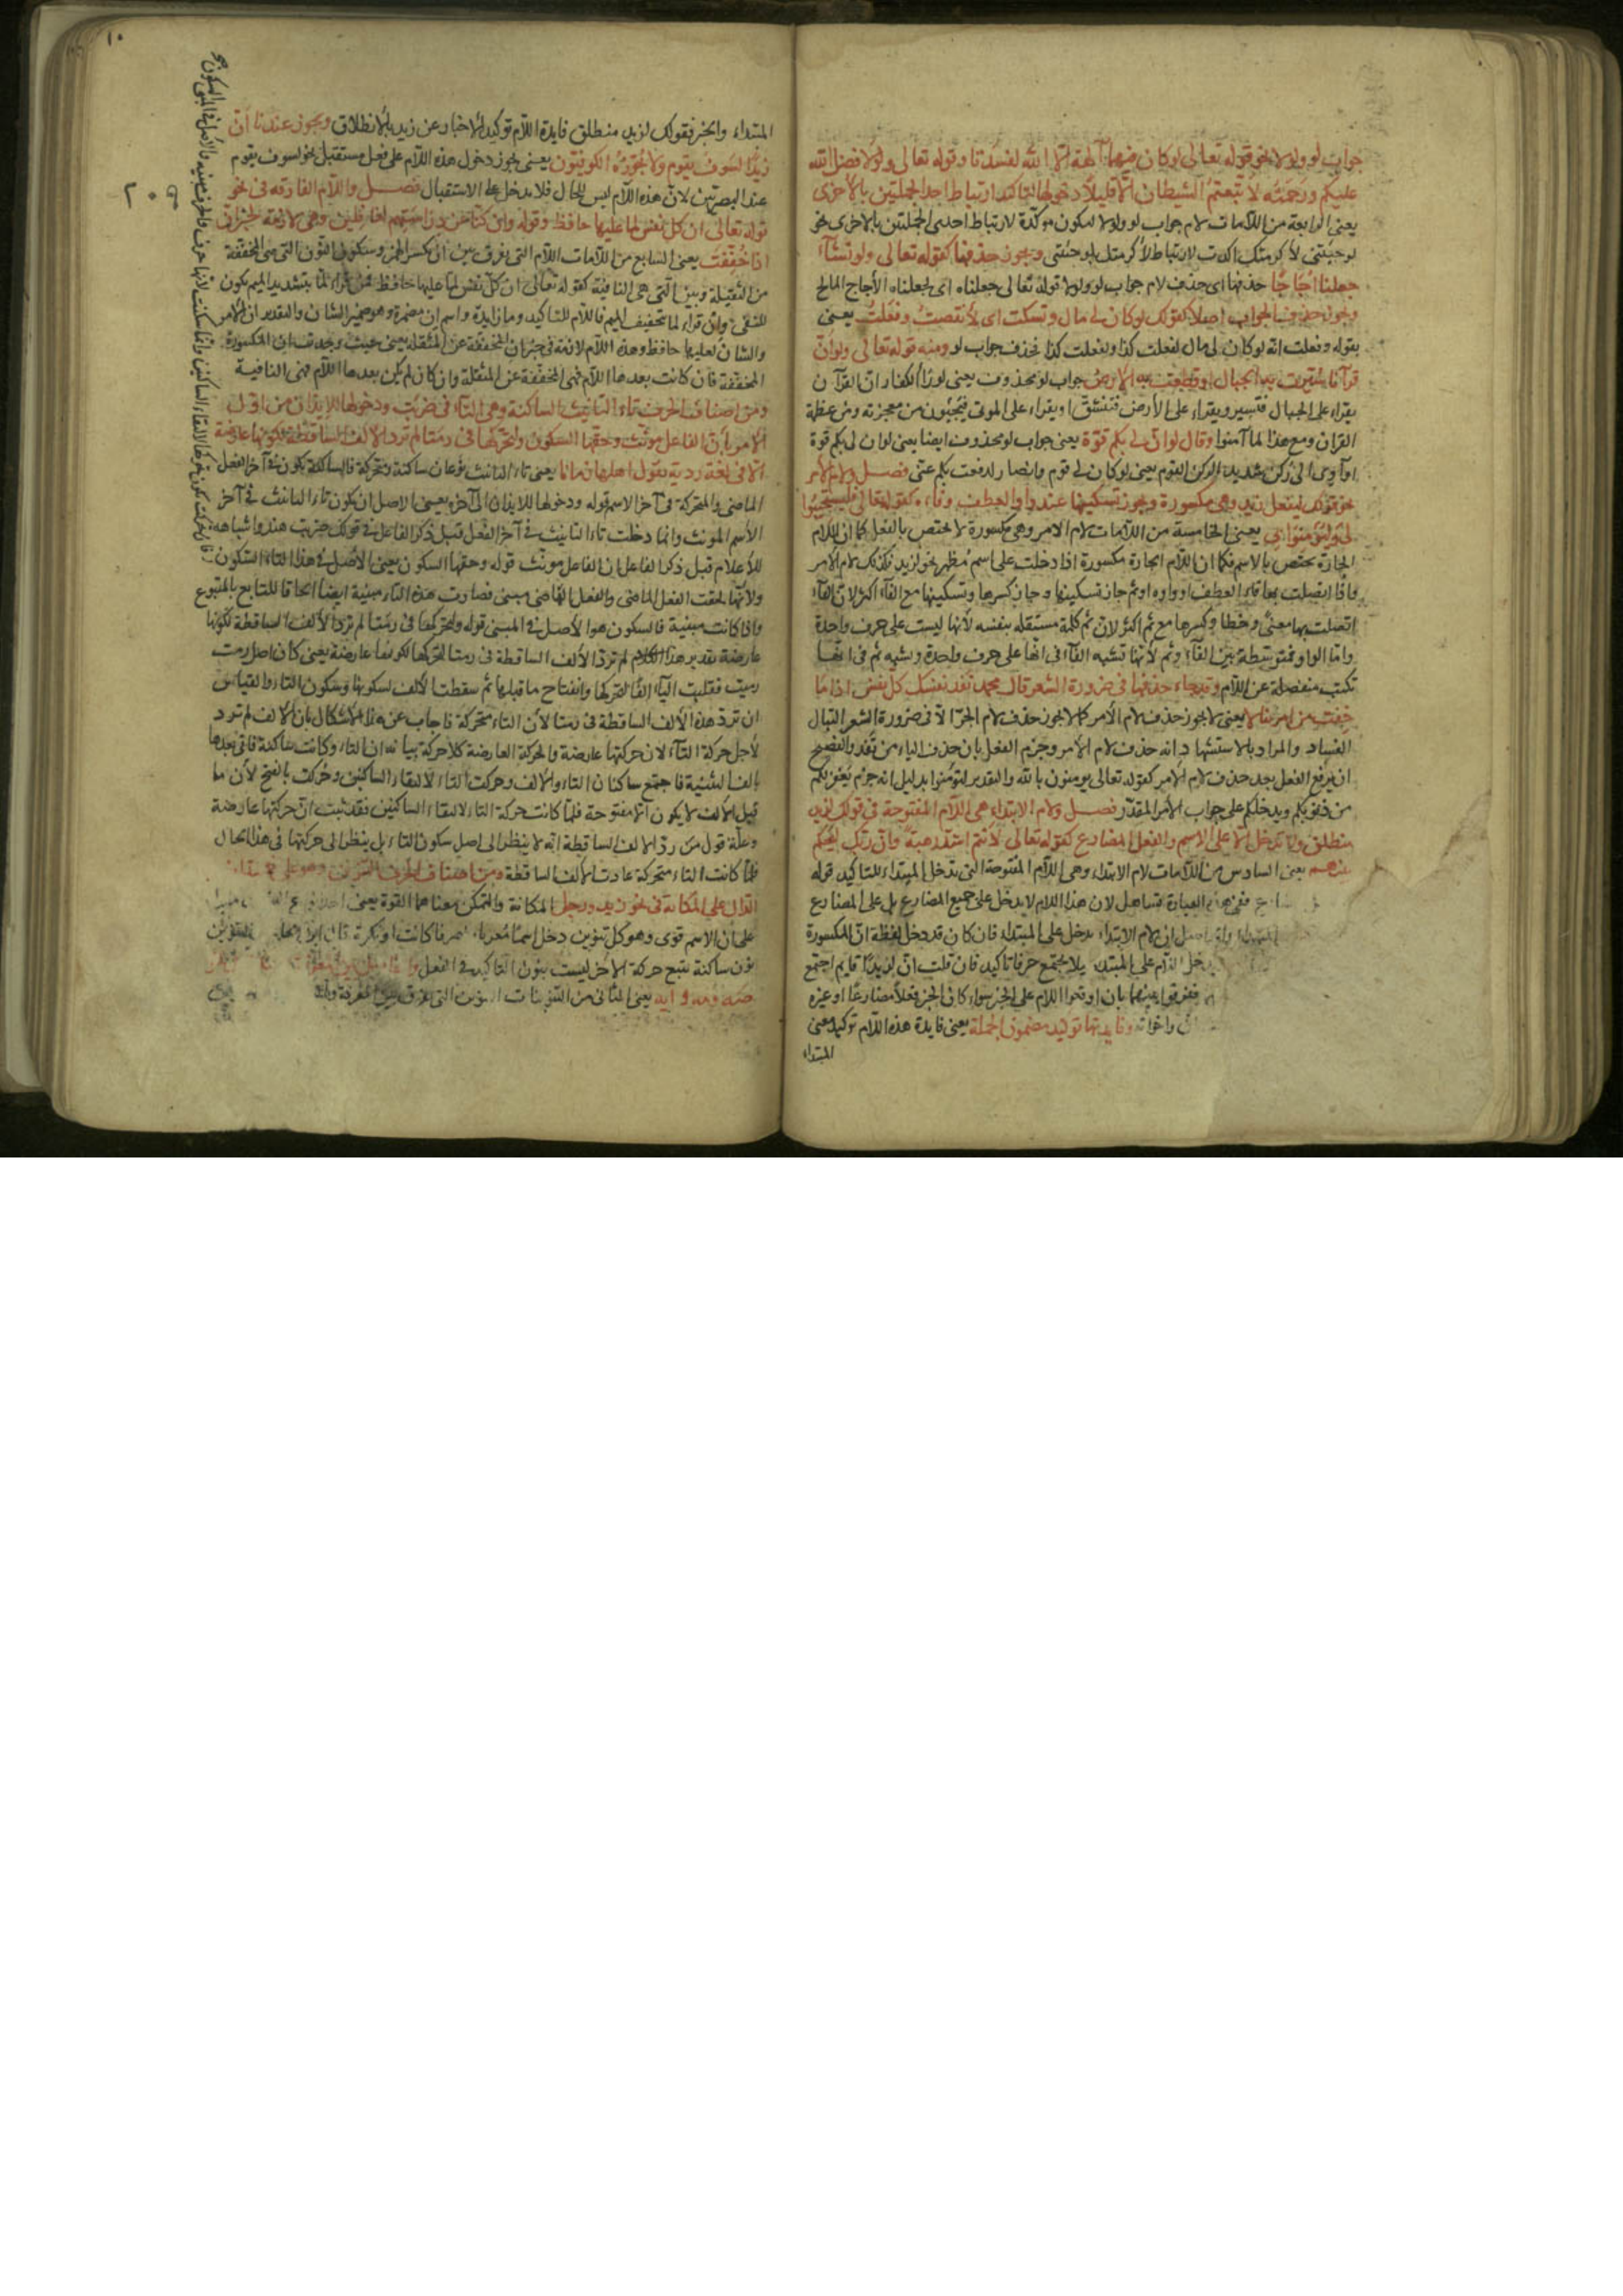 جواب لو ولولا نحو قوله تعالى لو كان فيهما آلهة الا الله لفسدتا وقوله تعالى ولولا فضل الله
عليكم ورحمته لاتبعتم الشيطان الا قليلا ودخولها لتاكيد ارتباط احد الجملتين بالاخرى
يعنى الرابعة من اللامات لام جواب لو ولولا ليكون موكدة لارتباط احدى الجملتين بالاخرى نحو
لو جئتنى لاكرمتك اكدت لارتباط لاكرمتك بلو جئتنى ويجوز حذفها كقوله تعالى ولو نشآء
جعلنا اجاجا حذفها اى حذف لام جواب لو ولولا قوله تعالى جعلناه اى لجعلناه الاجاج المالح
ويجوز حذف الجواب اصلا كقولك لو كان لى مال وتسكت اى لانفقت وفعلت يعنى
بقوله وفعلت انه لو كان لى مال لفعلت كذا ولفعلت كذا فحذف جواب لو ومنه قوله تعالى ولو ان
قرآنا سيرت به الجبال او قطعت به الارض جواب لو محذوف يعنى لو رأ الكفار ان القرآن
يقراء على الجبال فتسير ويقراء على الارض فتنشق او يقراء على الموتى فيجيبون من معجزته ومن عظمة
القران ومع هذا لما آمنوا وقال لو ان لى بكم قوة يعنى جواب لو محذوف ايضا يعنى لو ان لى بكم قوة
او آوى الى ركن شديد الركن القوم يعنى لو كان لى قوم وانصار لدفعت بكم عنى فصل ولام الامر
نحو قولك ليفعل زيد وهى مكسورة ويجوز تسكينها عند واو العطف وفاءه كقوله تعالى فليستجيبوا
لى وليؤمنوا بى يعنى الخامسة من اللامات لام الامر وهى مكسورة لا تختص بالفعل كما ان اللام
الجارة يختص بالاسم فكما ان اللام الجارة مكسورة اذا دخلت على اسم مظهر نحو لزيد فكذلك لام الامر
واذا اتصلت بها فاء العطف او واوه او ثم جاز تسكينها وجاز كسرها وتسكينها مع الفاء اكثر لان الفاء
اتصلت بها معنى وخطا وكسرها مع ثم اكثر لان ثم كلمة مستقله بنفسه لانها ليست على حرف واحدة
واما الواو فمتوسطة بين الفاء وثم لانها تشبه الفاء فى انها على حرف واحدة ويشبه ثم فى انها
تكتب منفصلة عن اللام وقد جاء حذفها فى ضرورة الشعر قال محمد تفد نفسك كل نفس اذا ما
خفت من امر تبالا يعنى لا يجوز حذف لام الامر كما لا يجوز حذف لام الجر الا فى ضرورة الشعر التبال
الفساد والمراد بالاستشهاد انه حذف لام الامر وجزم الفعل بان حذف الياء من تفد والفصيح
ان يرفع الفعل بعد حذف لام الامر كقوله تعالى يومنون بالله والتقدير لتؤمنوا بدليل انه جزم يغفر لكم
من ذنوبكم ويدخلكم على جواب الامر المقدر فصل ولام الابتداء هى اللام المفتوحة فى قولك لزيد
منطلق ولا تدخل الا على الاسم والفعل المضارع كقوله تعالى لانتم اشد رهبة وان ربك ليحكم
بينهم يعنى السادس من اللامات لام الابتداء وهى اللام المفتوحة التى تدخل المبتداء للتاكيد قوله
العبارة تساهل لان هذا اللام لا يدخل على جميع المضارع بل على المضارع
لام الابتداء يدخل على المبتداء فان كان قد دخل لفظة ان المكسورة
يدخل اللام على المبتداء ليلا يجتمع حرفا تاكيد فان قلت ان لزيدا قايم اجتمع
ففرقوا بينهما بان اوقعوا اللام على الخبر سواء كان الخبر فعلا مضارعا او غيره
ان واخواته وفايدتها توكيد مضمون الجملة يعنى فايدة هذه اللام توكيد معنى
المبتداء
١٠
المبتداء والخبر فقولك لزيد منطلق فايدة اللام توكيد الاخبار عن زيد بالانطلاق ويجوز عندنا ان
زيدا لسوف يقوم ولا يجوزه الكوفيون يعنى يجوز دخول هذه اللام على فعل مستقبل نحو لسوف يقوم
عند البصريين لان هذه اللام ليس للحال فلا يدخل على الاستقبال فصل واللام الفارقه فى نحو
قوله تعالى ان كل نفس لما عليها حافظ وقوله وان كنا عن دراستهم لغافلين وهى لازمة لخبر ان
اذا خففت يعنى السابع من اللامات اللام التى يفرق بين ان بكسر الهمز وسكون النون التى هى المخففة
من الثقيلة وبين التى هى النافية كقوله تعالى ان كل نفس لما عليها حافظ فمن قراء لما بتشديد الميم يكون
للنفى وان قراء لما بتخفيف الميم فاللام للتاكيد وما زايدة واسم ان مضمرة وهو ضمير الشان والتقدير ان الامر
والشان لعليها حافظ وهذه اللام لازمة فى خبر ان المخففة عن المثقله يعنى حيث وجدت ان المكسورة
المخففة فان كانت بعدها اللام فهى المخففة عن المثقلة وان كان لم يكن بعدها اللام فهى النافية
ومن اصناف الحرف تاء التانيث الساكنة وهى التاء فى ضربت ودخولها للايذان من اول
الامر بان الفاعل مونث وحقها السكون ولتحركها فى رمتا لم ترد الالف الساقطة لكونها عارضة
الا فى لغة ردية يقول اهلها رماتا يعنى تاء التانيث نوعان ساكنة ومتحركة فالساكنة يكون فى آخر الفعل
الماضى والمتحركة فى آخر الاسم قوله ودخولها للايذان الى آخره يعنى الاصل ان يكون تاء التانيث فى آخر
الاسم المونث وانما دخلت تاء التانيث فى آخر الفعل قبل ذكر الفاعل فى قولك ضربت هند واشباهه
للاعلام قبل ذكر الفاعل ان الفاعل مونث قوله وحقها السكون يعنى الاصل فى هذا التاء السكون
ولانها لحقت الفعل الماضى والفعل الماضى مبنى فصارت هذه التاء مبنية ايضا الحاقا للتابع بالمتبوع
واذا كانت مبنية فالسكون هو الاصل فى المبنى قوله ولتحركها فى رمتا لم ترد الالف الساقطة لكونها
عارضة تقدير هذا الكلام لم ترد الالف الساقطة فى رمتا لتحركها لكونها عارضة يعنى كان اصل رمت
رميت فقلبت الياء الفا لتحركها وانفتاح ما قبلها ثم سقطت الالف لسكونها وسكون التاء والقياس
ان ترد هذه الالف الساقطة فى رمتا لان التاء متحركة فاجاب عن هذا الاشكال بان الالف لم ترد
لاجل حركة التاء لان حركتها عارضة والحركة العارضة كلا حركة بيانه ان التاء وكانت ساكنة فاتى بعدها
بالف التثنية فاجتمع ساكنان التاء والالف وحركت التاء لالتقاء الساكنين وحركت بالفتح لان ما
قبل الالف لا يكون الا مفتوحة فلما كانت حركة التاء لالتقاء الساكنين فقد ثبت ان حركتها عارضة
وعلة قول من رد الالف الساقطة انه لا ينظر الى اصل سكون التاء بل ينظر الى حركتها فى هذا الحال
فلما كانت التاء متحركة عادت الالف الساقطة ومن اصناف الحرف التنوين وهو على
الدال على المكانة فى نحو زيد ورجل المكانة والتمكن معناهما القوة يعنى
على ان الاسم قوى وهو كل تنوين دخل اسما معربا منصرفا كانت او نكرة
نون ساكنة تتبع حركة الاخر ليست بنون التاكيد فى الفعل
صه ومه وايه يعنى الثانى من التنوينات التنوين التى يفرق بين المعرفة
٢٠٩